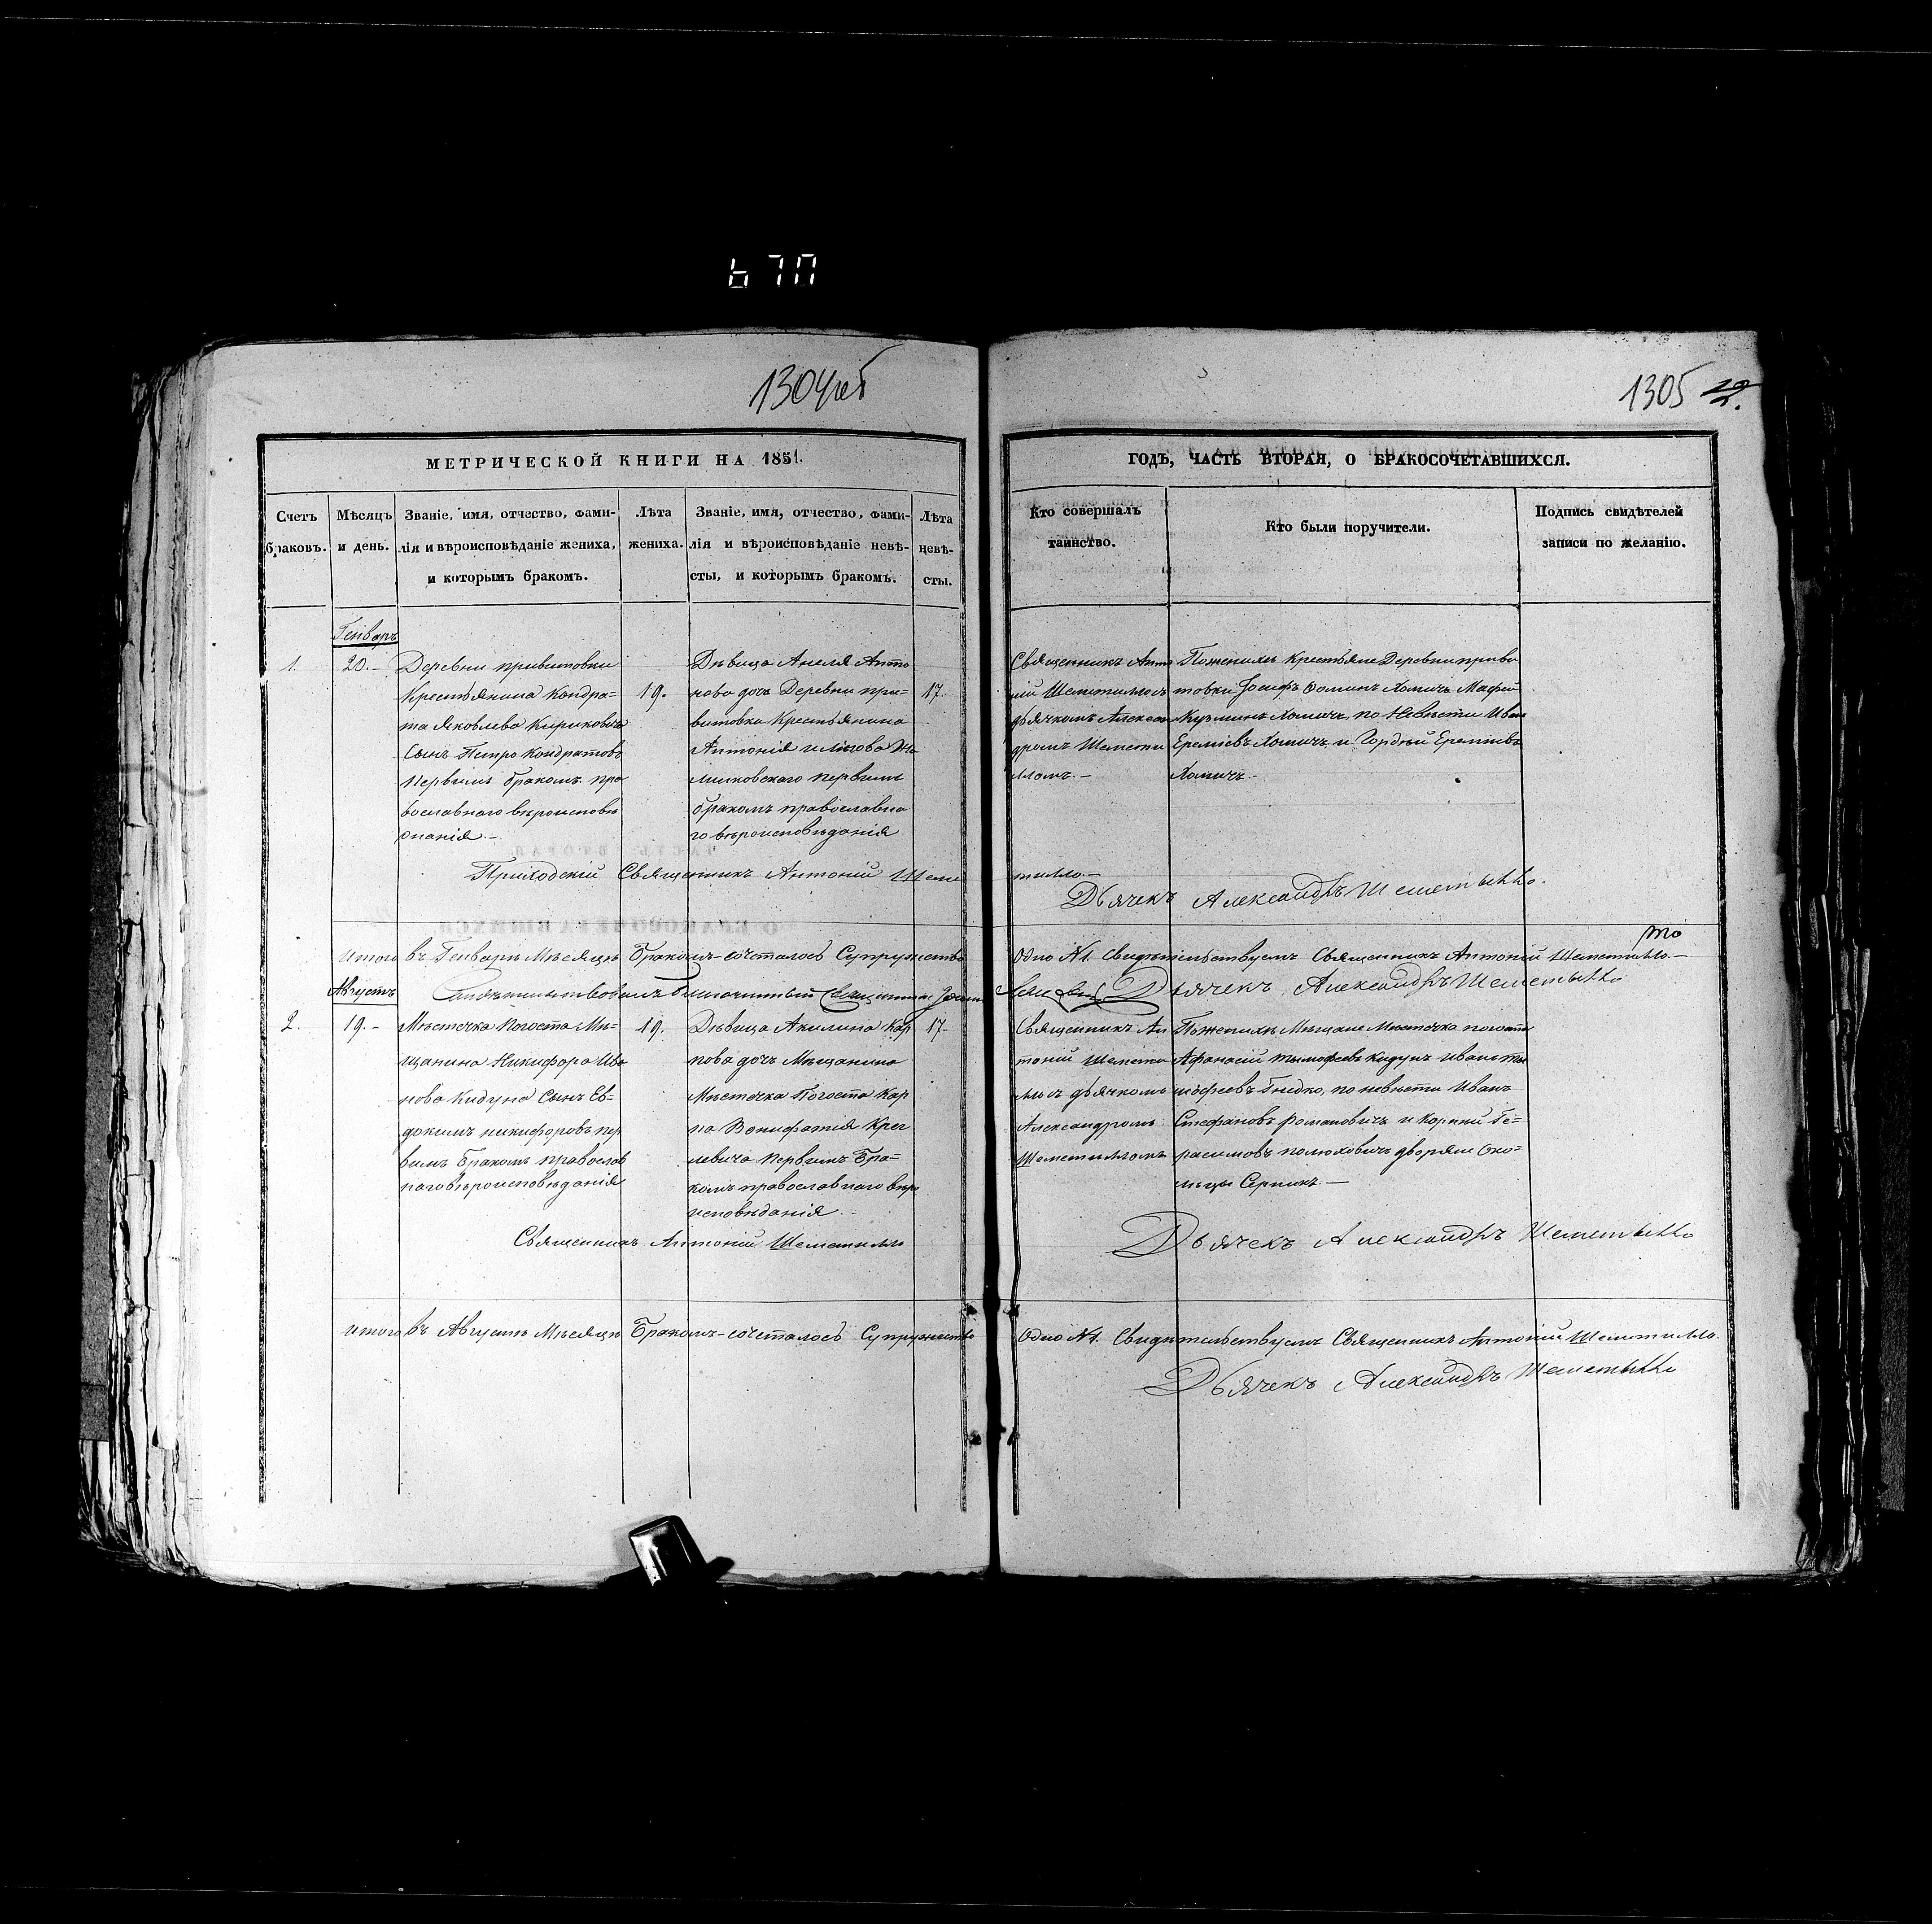 670
1304 об
1305
МЕТРИЧЕСКОЙ КНИГИ НА 1851.
ГОДЪ, ЧАСТЬ ВТОРАЯ, О БРАКОСОЧЕТАВШИХСЯ.
Счетъ
браковъ.
Мѣсяцъ
и день.
Званіе, имя, отчество, фами-
лія и вѣроисповѣданіе жениха,
и которымъ бракомъ.
Лѣта
жениха.
Званіе, имя, отчество, фами-
лія и вѣроисповѣданіе невѣ-
сты, и которымъ бракомъ.
Лѣта
невѣ-
сты.
Кто совершалъ
таинство.
Кто были поручители.
Подпись свидѣтелей
записи по желанію.
Генварь
1.
20.-
Деревни привитовки
Крестьянина Кондра-
та Яковлева Кириковича
Сынъ Петро Кондратовъ
Первымъ бракомъ пра
вославнаго вѣроисповѣ
данія.-
19.
Дѣвица Анеля Анто
нова дочь Деревни при-
витовки Крестьянина
Антонія
первымъ
бракомъ православна
го вѣроисповѣданія
17.
Священникъ Анто
ній Шеметилло съ
дьячкомъ Алексан
дромъ Шемети
лломъ.-
Пожених Крестьяне Деревни приви
товки Іосифъ Фоминъ Хомичъ Матфей
Кузминъ Хомичъ, по Невѣсти Иван
Ереміевъ Хомичъ и Гордѣй Ереміевъ
Хомичъ.-
Приходскій Священникъ Антоній Шеме
тилло.-
Дьячекъ Александръ Шеметылло.
Итого въ Генварѣ Мѣсяцѣ Бракомъ-сочеталось Супружество
Одно №1. Свидѣтельствуемъ Священникъ Антоній Шеметилло.-
Свидѣтельствовалъ Благочинный Священникъ
Дьячекъ Александръ Шеметылло
Августъ
2.
19.-
Мѣстечка Погоста Мѣ-
щанина Никифора Ива
нова Кидуна Сынъ Ев-
докимъ никифоровъ пер
вымъ бракомъ православ
наго вѣроисповѣданія
19.
Дѣвица Акилина Кар
пова дочь Мѣщанина
Мѣстечка Погоста Кар
па Вонифатія Крег
левича Первымъ Бра-
комъ православнаго вѣро
исповѣданія.
17-
Священникъ Ан
тоній Шемети
лло съ дьячкомъ
Александромъ
Шеметилломъ
Пожених Мѣщане Мѣстечка погоста
Афанасій тымофеевъ Кидунъ Иван ты
мофеевъ Гнидко, по невѣсти Иван
Стефановъ Романовичъ и Корнѣй Ге-
расимовъ полюховичъ дворяне Око-
лицы Серникъ.-
Священникъ Антоній Шеметилло
Дьячекъ Александръ Шеметылло
Итого въ Августѣ Мѣсяцѣ Бракомъ-сочеталось Супружество
Одно №1. Свидѣтельствуемъ Священникъ Антоній Шеметилло.
Дьячекъ Александръ Шеметылло